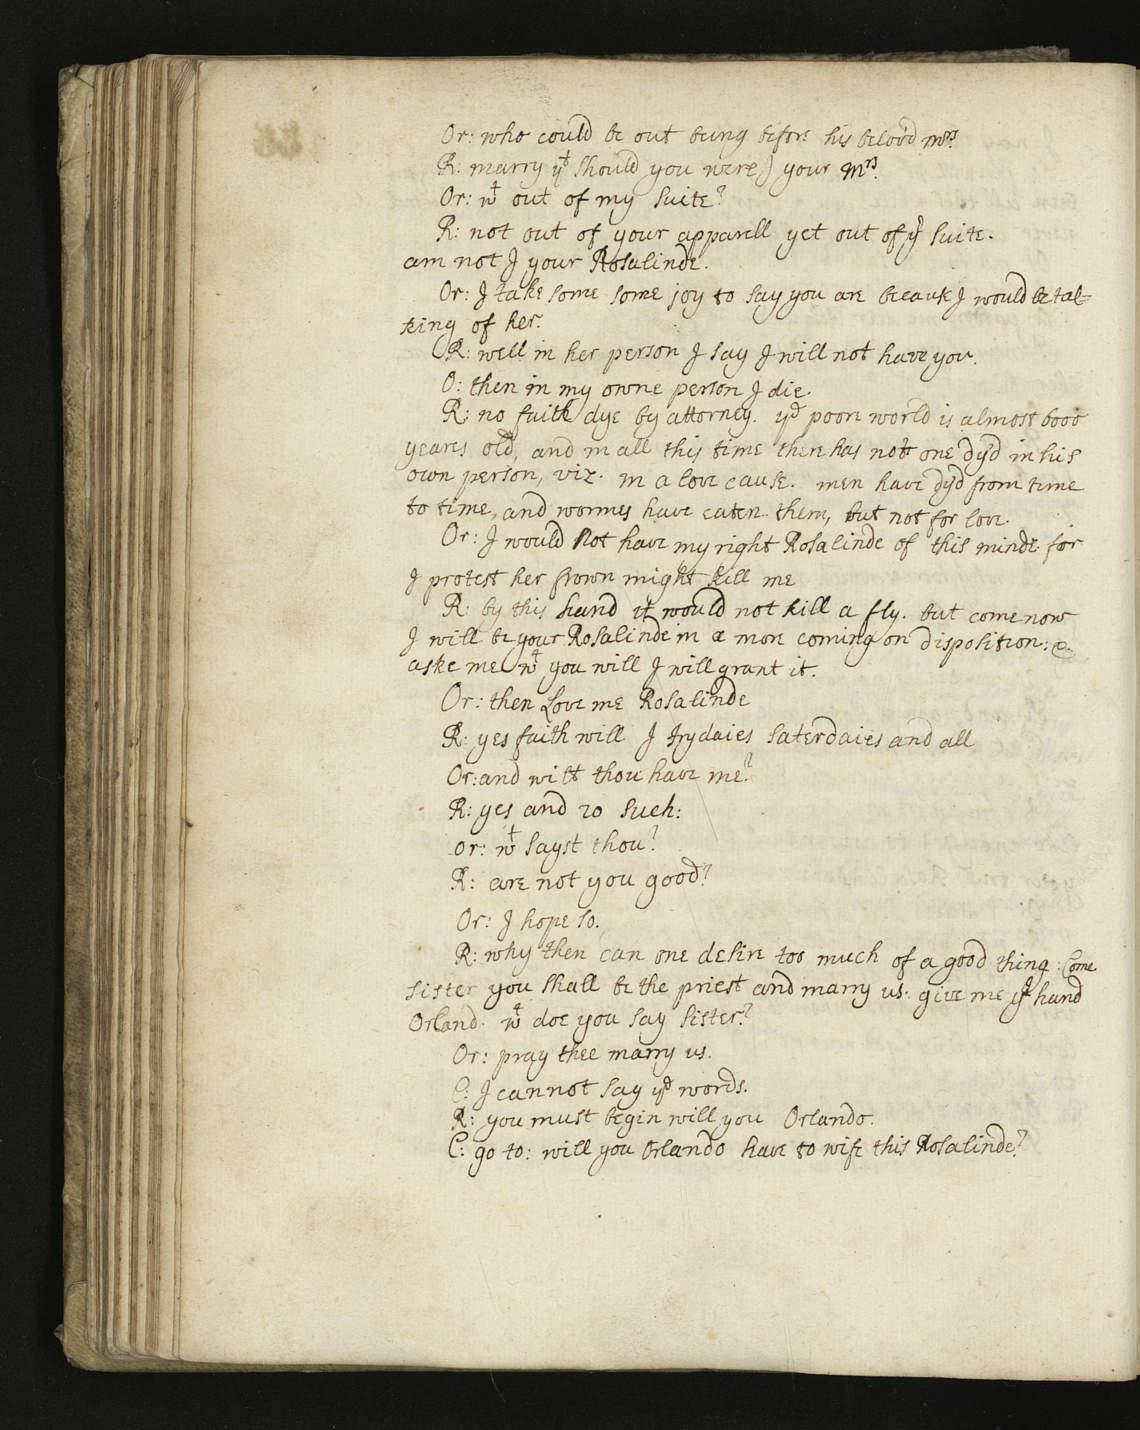 Or: who could be out being before his belov'd mrs?
R: marry yt should you were J your Mrs.
Or: wt out of my suite?
R: not out of your apparell yet out of yr suite.
am not J your Rosalinde.
Or: J take some some joy to say you are because J would be tal=
king of her.
R: well in her person J say J will not have you.
O: then in my owne person J die.
R: no faith dye by attorney. ye poor world is almost 6000
yeares old, and in all this time there has not one dy'd in his
own person, viz. in a love cause. men have dy'd from time
to time, and wormes have eaten them, but not for love.
Or: J would not have my right Rosalinde of this minde for
J protest her frown might kill me
R: by this hand it would not kill a fly. but come now
J will be your Rosalinde in a more coming on disposition: &
aske me wt you will J will grant it.
Or: then Love me Rosalinde
R: yes faith will J frydaies saterdaies and all
Or: and wilt thou have me?
R: yes and 20 such:
or: wt sayst thou?
R: are not you good?
Or: J hope so.
R: why then can one desire too much of a good thing: Come
sister you shall be the priest and marry us. give me yr hand
Orland. wt doe you say sister?
Or: pray thee marry us.
C: J cannot say ye words.
R: you must begin will you Orlando.
C: go to: will you Orlando have to wife this Rosalinde?